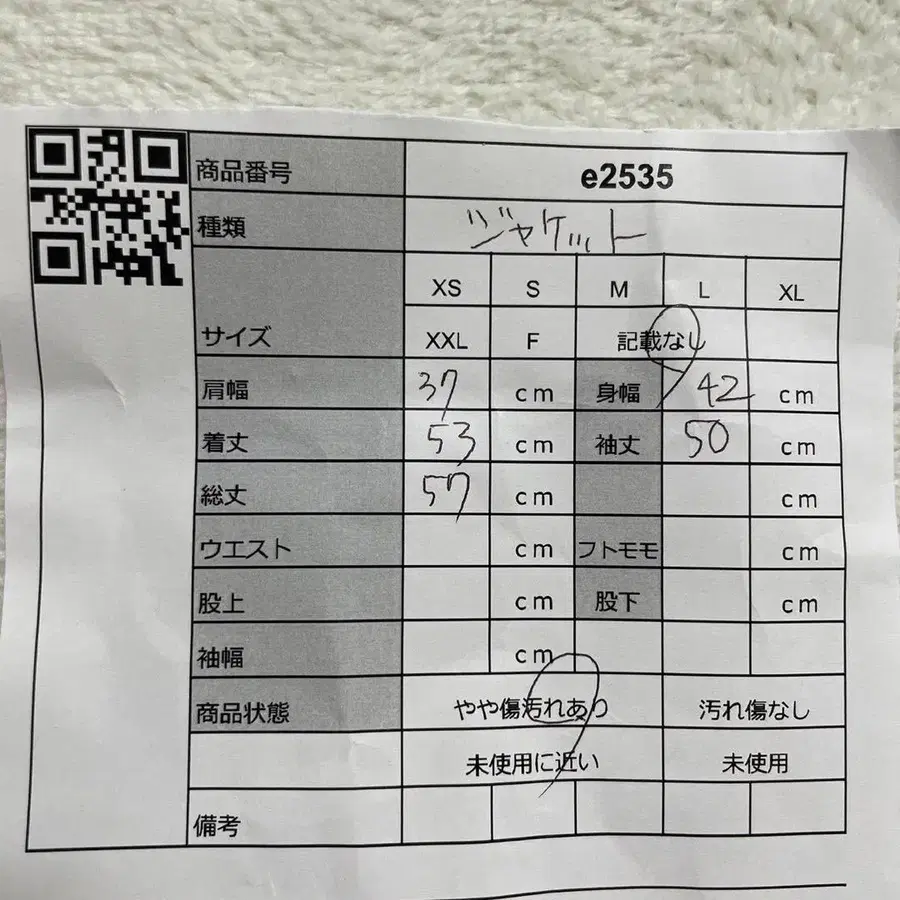 商品番号 e2535
種類 ジャケット
XS S M L XL
サイズ XXL F 記載なし
肩幅 37 cm 身幅 42 cm
着丈 53 cm 袖丈 50 cm
総丈 57 cm cm
ウエスト cm フトモモ cm
股上 cm 股下 cm
袖幅 cm
商品状態 やや傷汚れあり 汚れ傷なし
未使用に近い 未使用
備考